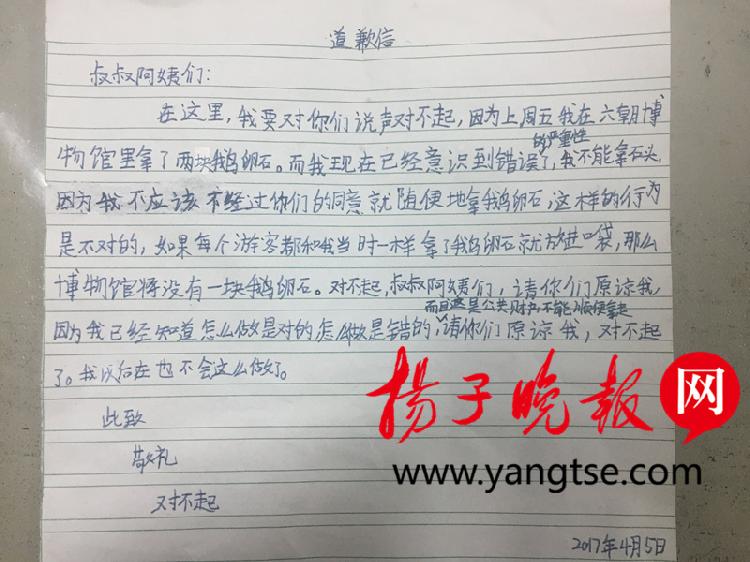 道歉信
叔叔阿姨们:
在这里,我要对你们说声对不起,因为上周五我在六朝博
的严重性
物馆里拿了两块鹅卵石。而我现在已经意识到错误了,我不能拿石头
因为我不应该不经过你们的同意就随便地拿鹅卵石,这样的行为
是不对的,如果每个游客都和我当时一样拿了鹅卵石就放进口袋,那么
博物馆将没有一块鹅卵石。对不起,叔叔阿姨们,请你们原谅我,
而且这是公共财产,不能随便拿走
因为我已经知道怎么做是对的怎么做是错的,请你们原谅我,对不起
了。我以后在也不会这么做了。
此致
敬礼
对不起
2017年4月5日
扬子晚报网
www.yangtse.com